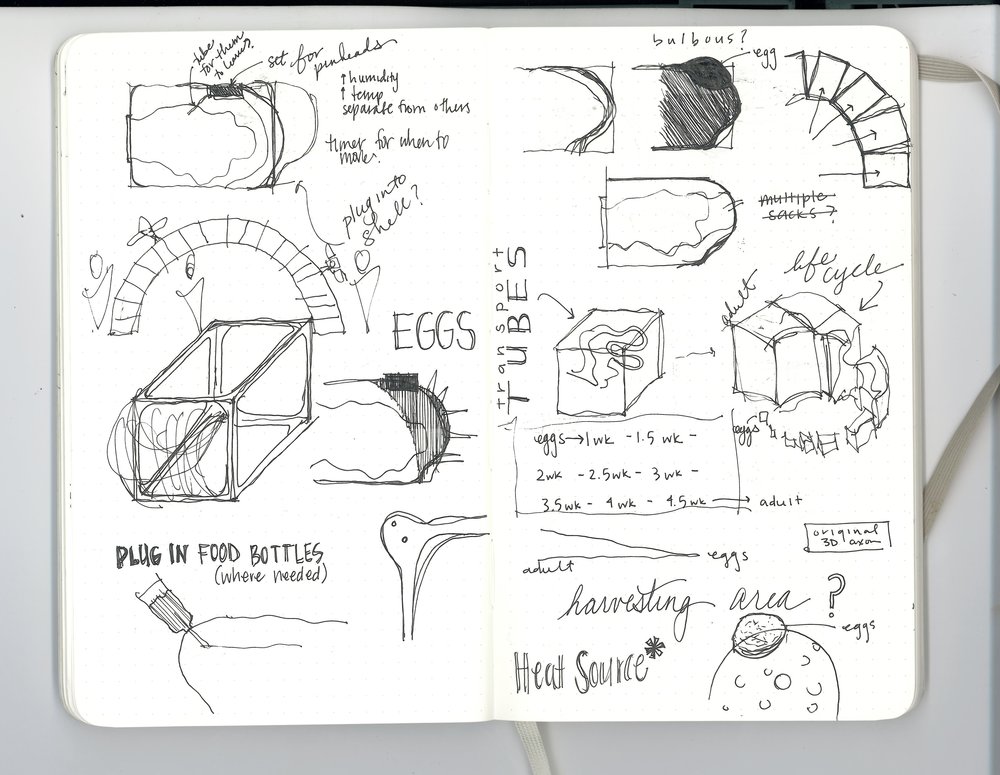 tube
for them
to leave?
set for pinheads
↑ humidity
↑ temp
separate from others
timer for when to
move?
plug into
shell?
EGGS
PLUG IN FOOD BOTTLES
(where needed)
bulbous?
egg
multiple
sacks?
transport
TUBES
life
cycle
adult
eggs
eggs → 1wk - 1.5 wk -
2wk - 2.5wk - 3wk -
3.5wk - 4wk - 4.5wk → adult
original
3D axon
adult
eggs
harvesting area?
eggs
Heat Source*